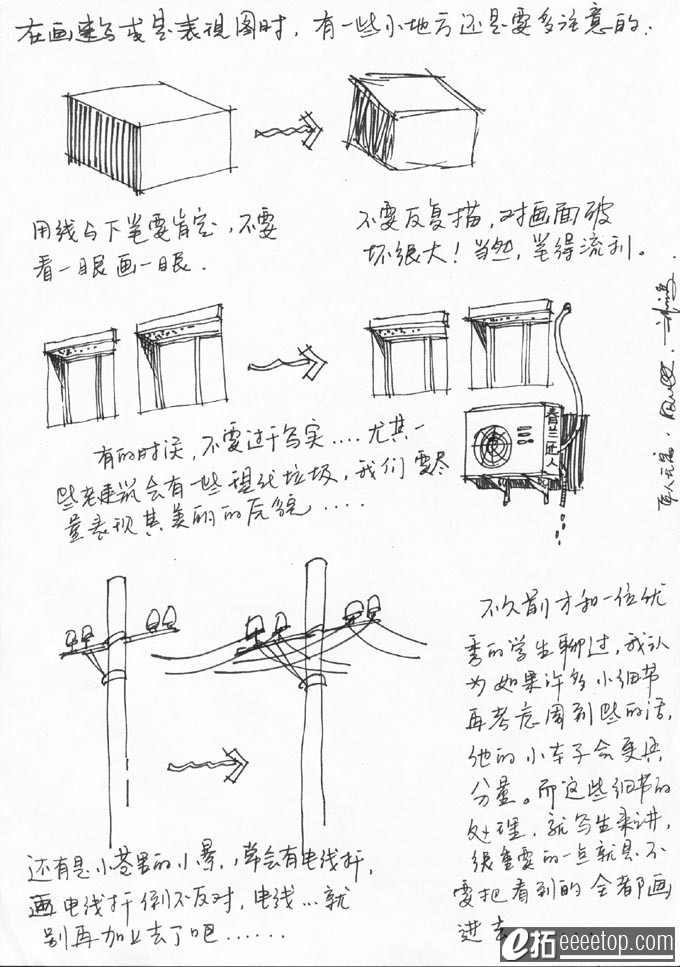 在画速写或是表现图时，有一些小地方还是要多注意的.
用线与下笔要肯定，不要
看一眼画一眼.
不要反复描，对画面破
坏很大！当然，笔得流利。
有的时候，不要过于写实....尤其一
些老建筑会有一些现代垃圾，我们要尽
量表现其美丽的后貌.....
春兰
不久前才和一位优
秀的学生聊过，我认
为如果许多小细节
再考虑周到些的话，
他的小车子会更具
分量。而这些细节的
处理，就写生来讲，
很重要的一点就是不
要把看到的全都画
进去
还有是小巷里的小景，常会有电线杆，
画电线杆倒不反对，电线...就
别再加上去了吧......
e拓 eeeetop.com